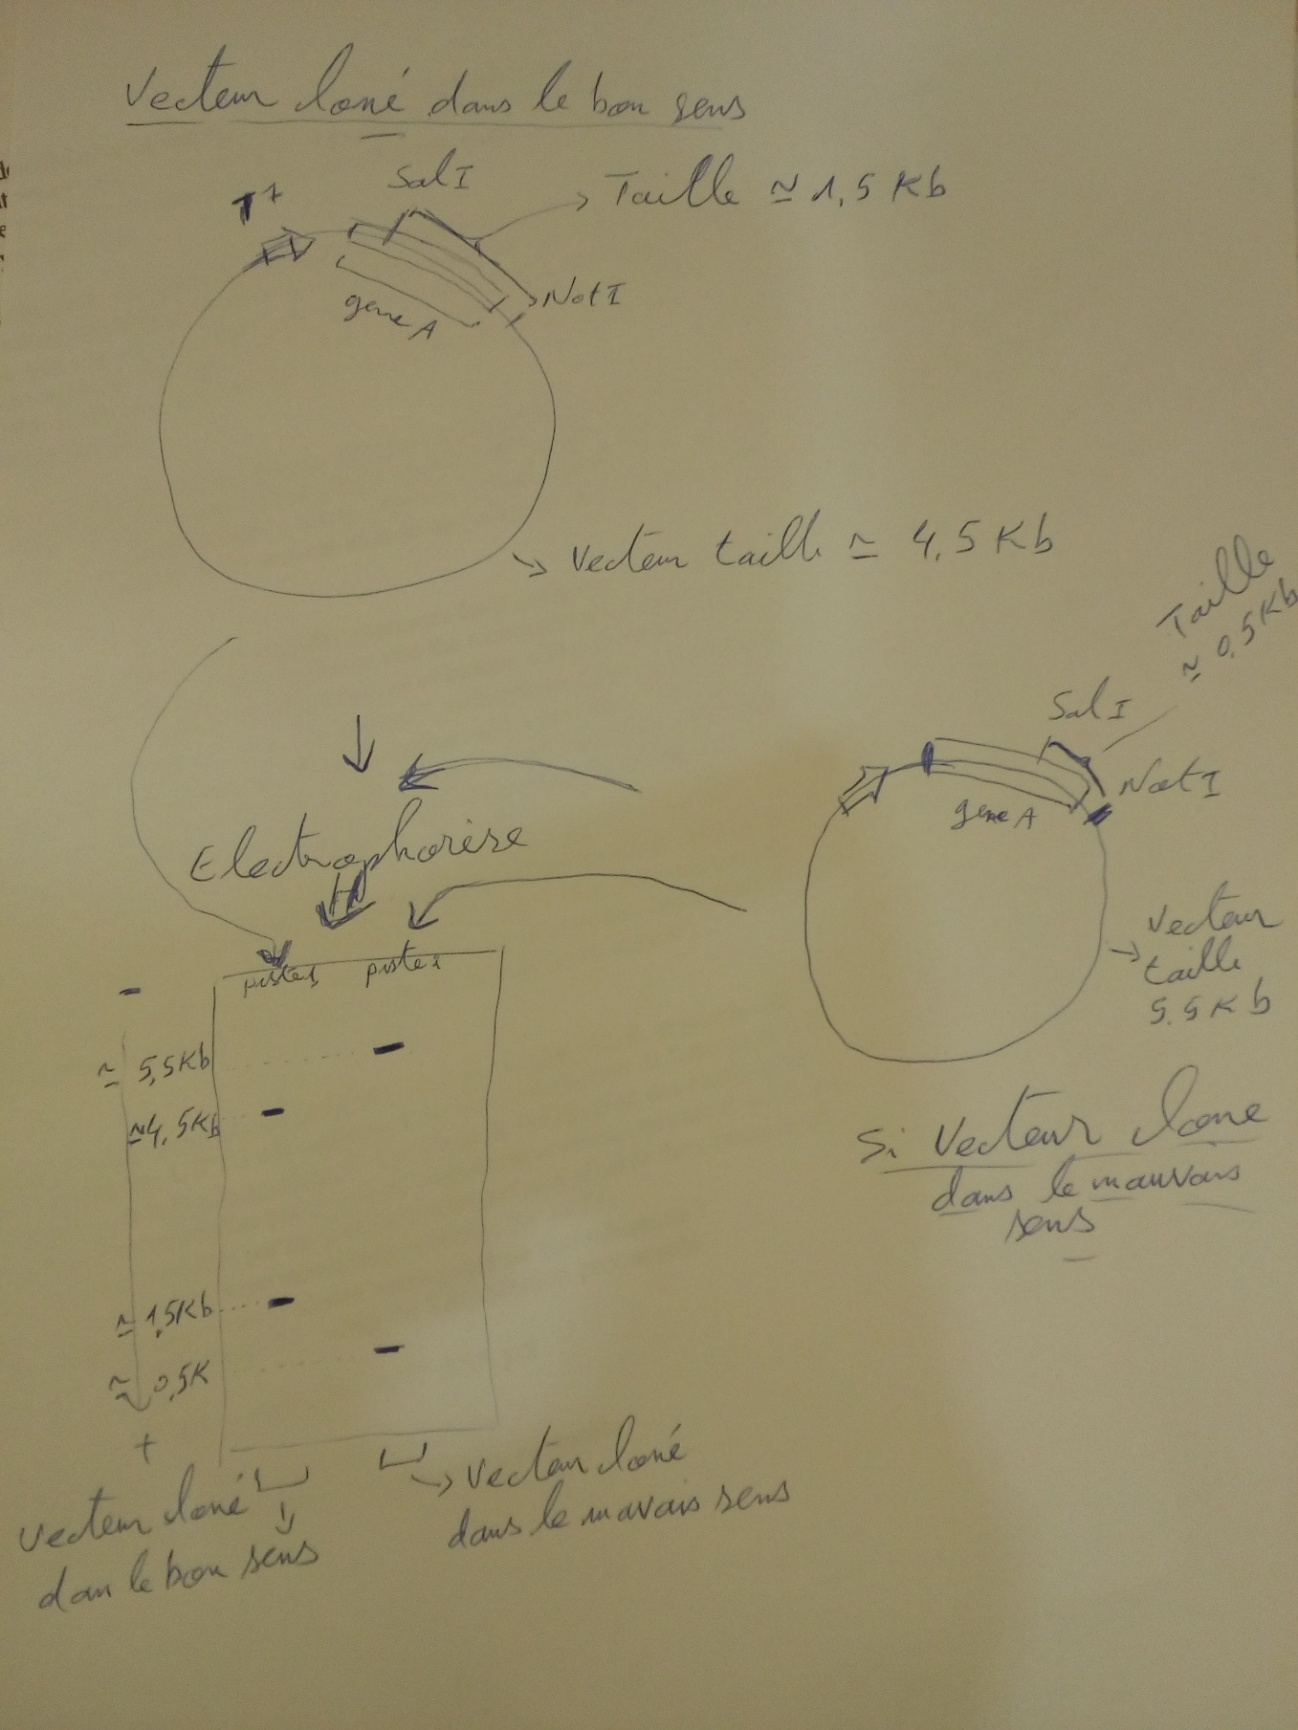 Vecteur cloné dans le bon sens
Sal I
Taille ≃ 1,5 Kb
Not I
gene A
Vecteur taille ≃ 4,5 Kb
Taille
≃ 0,5 Kb
Sal I
Not I
gene A
Vecteur
taille
5,5 Kb
Si Vecteur cloné
dans le mauvais
sens
Electrophorèse
piste 1
piste 2
-
≃ 5,5 Kb
≃ 4,5 Kb
≃ 1,5 Kb
≃ 0,5 K
+
Vecteur cloné
dan le bon sens
Vecteur cloné
dans le mavais sens